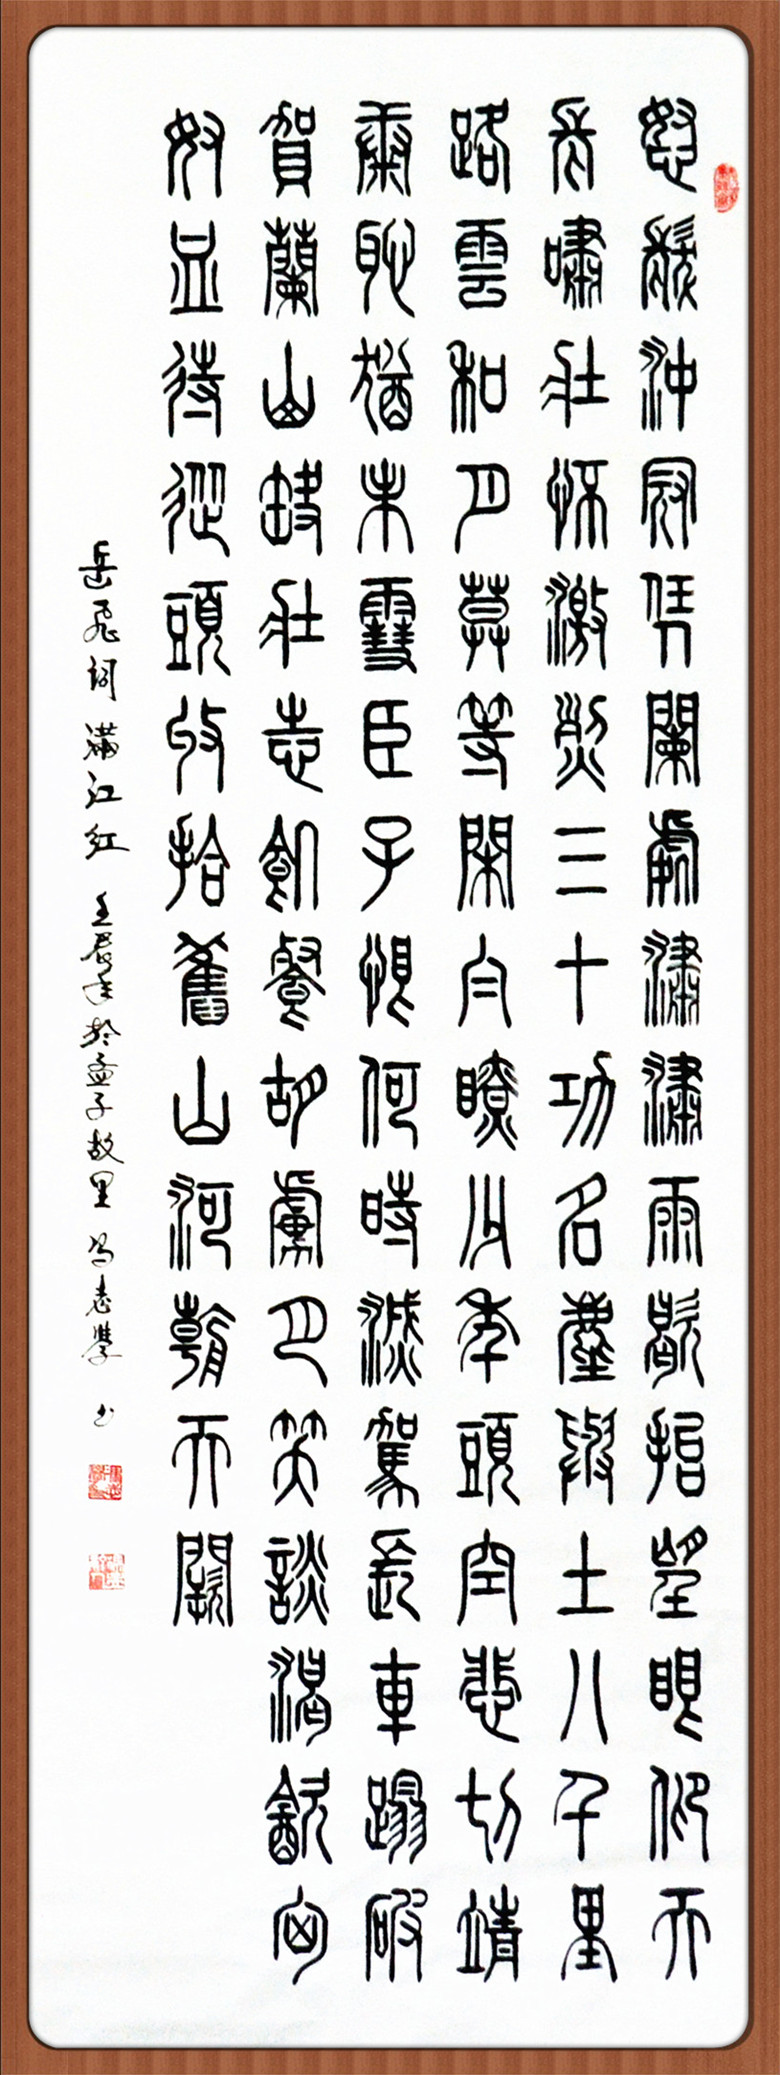 怒髮沖冠凭闌處瀟瀟雨歇抬望眼仰天
長嘯壯懷激烈三十功名塵與土八千里
路雲和月莫等閑白瞭少年頭空悲切靖
康恥猶未雪臣子恨何時滅駕長車蹋破
賀蘭山缺壯志飢餐胡虜肉笑談渴飲匈
奴血待從頭收拾舊山河朝天闕
岳飛詞 滿江紅 壬辰年於孟子故里 馮志學 书